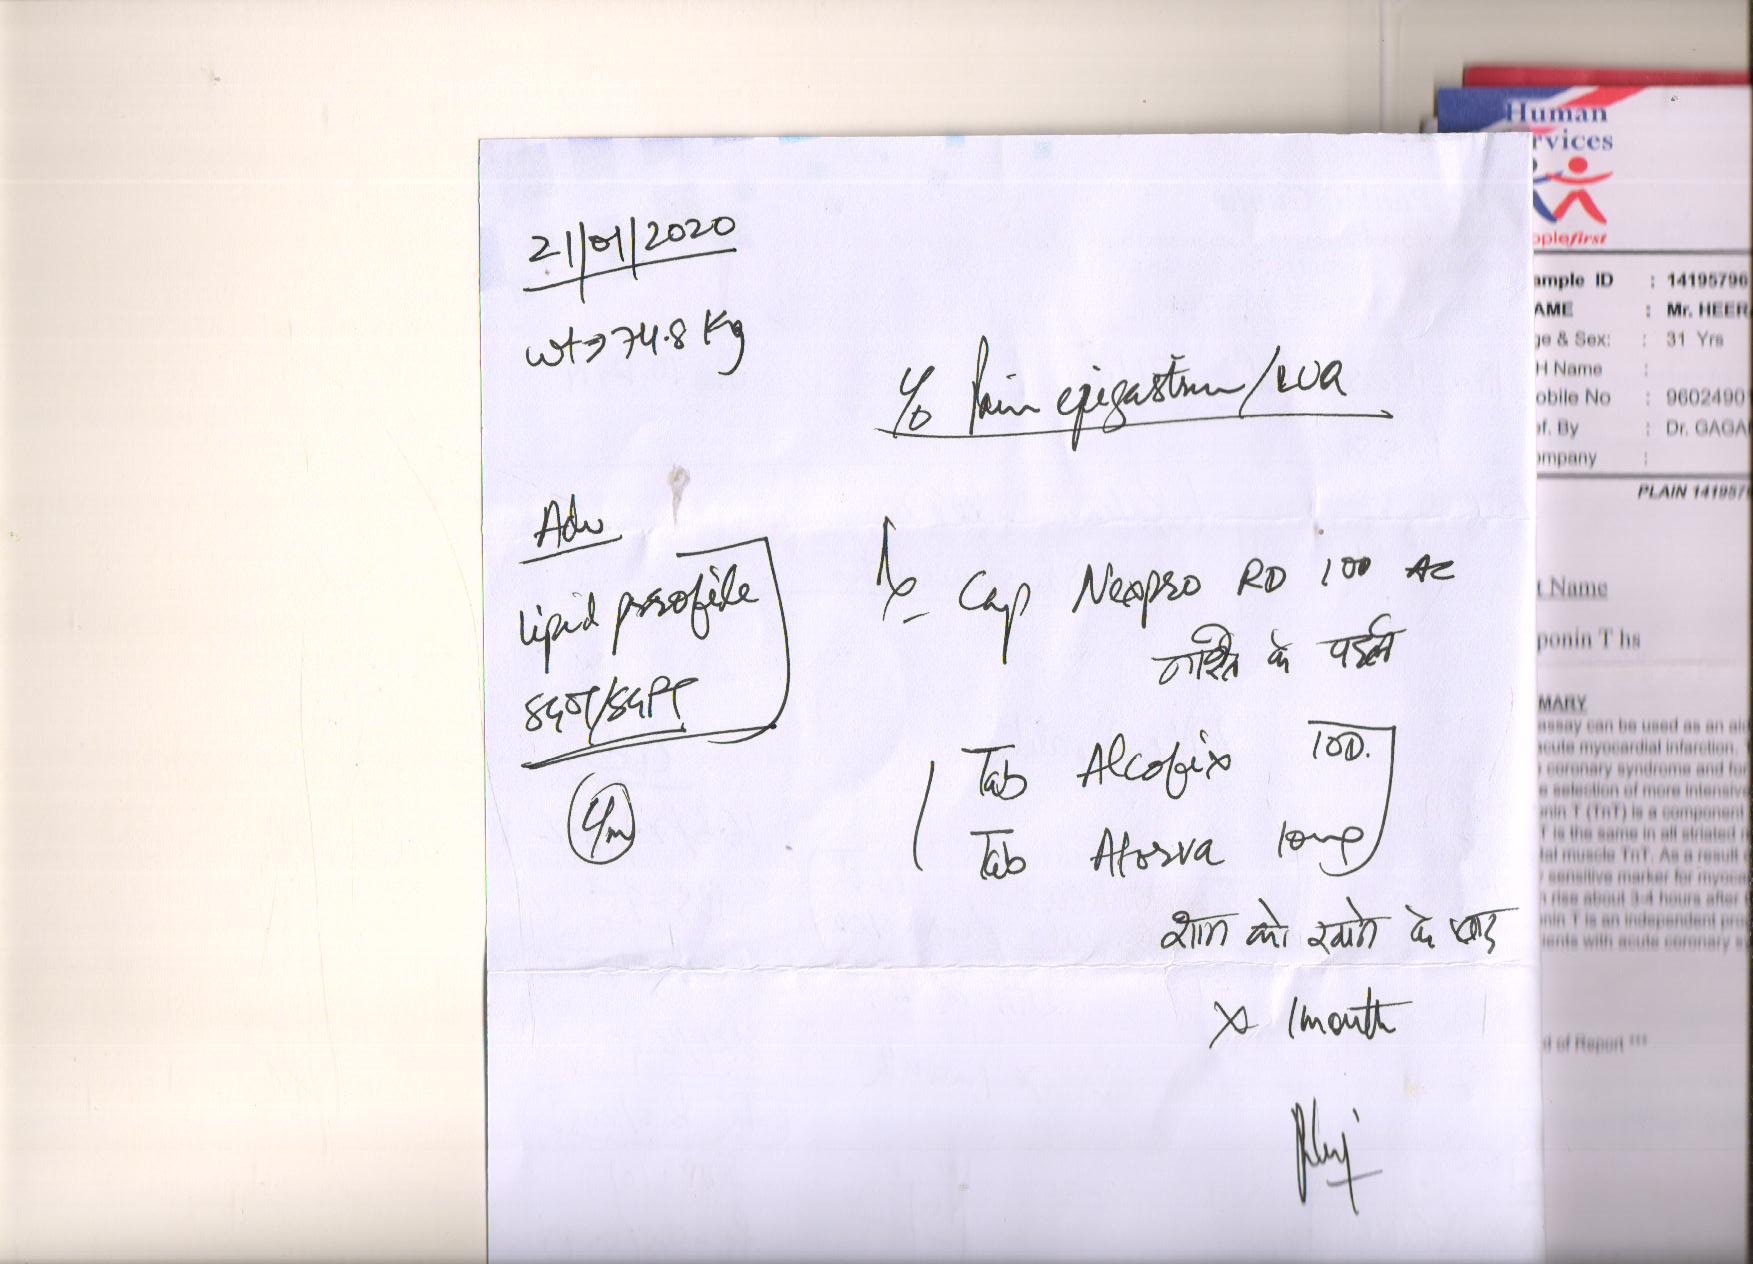 21/01/2020
wt→74.8 Kg
c/o Pain epigastrium/
Adv
lipid profile
SGOT/SGPT
Cap Nexpro RD 100 AC
नाश्ते के पहले
Tab Alcofix 100.
Tab Atorva 10mg
शाम को खाने के बाद
x 1month
Human
rvices
oplefirst
ample ID : 14195796
AME : Mr. HEER
ge & Sex: : 31 Yrs
H Name :
obile No : 9602490
ef. By : Dr. GAGA
ompany :
PLAIN 141957
t Name
ponin T hs
MARY
assay can be used as an aid
acute myocardial infarction.
coronary syndrome and for
e selection of more intensive
nin T (TnT) is a component
T is the same in all striated
al muscle TnT. As a result
sensitive marker for myoca
n rise about 3-4 hours after
nin T is an independent pro
ients with acute coronary s
d of Report ***